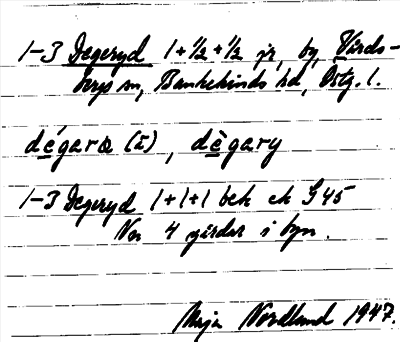 1-3 Degeryd 1+½+½ jr, by, Vårds-
bergs sn, Bankekinds hd, Östg. l.
dégara (I), dègary
1-3 Degeryd 1+1+1 bek ek G 45
Nu 4 gårdar i byn.
Maja Nordlund 1947.